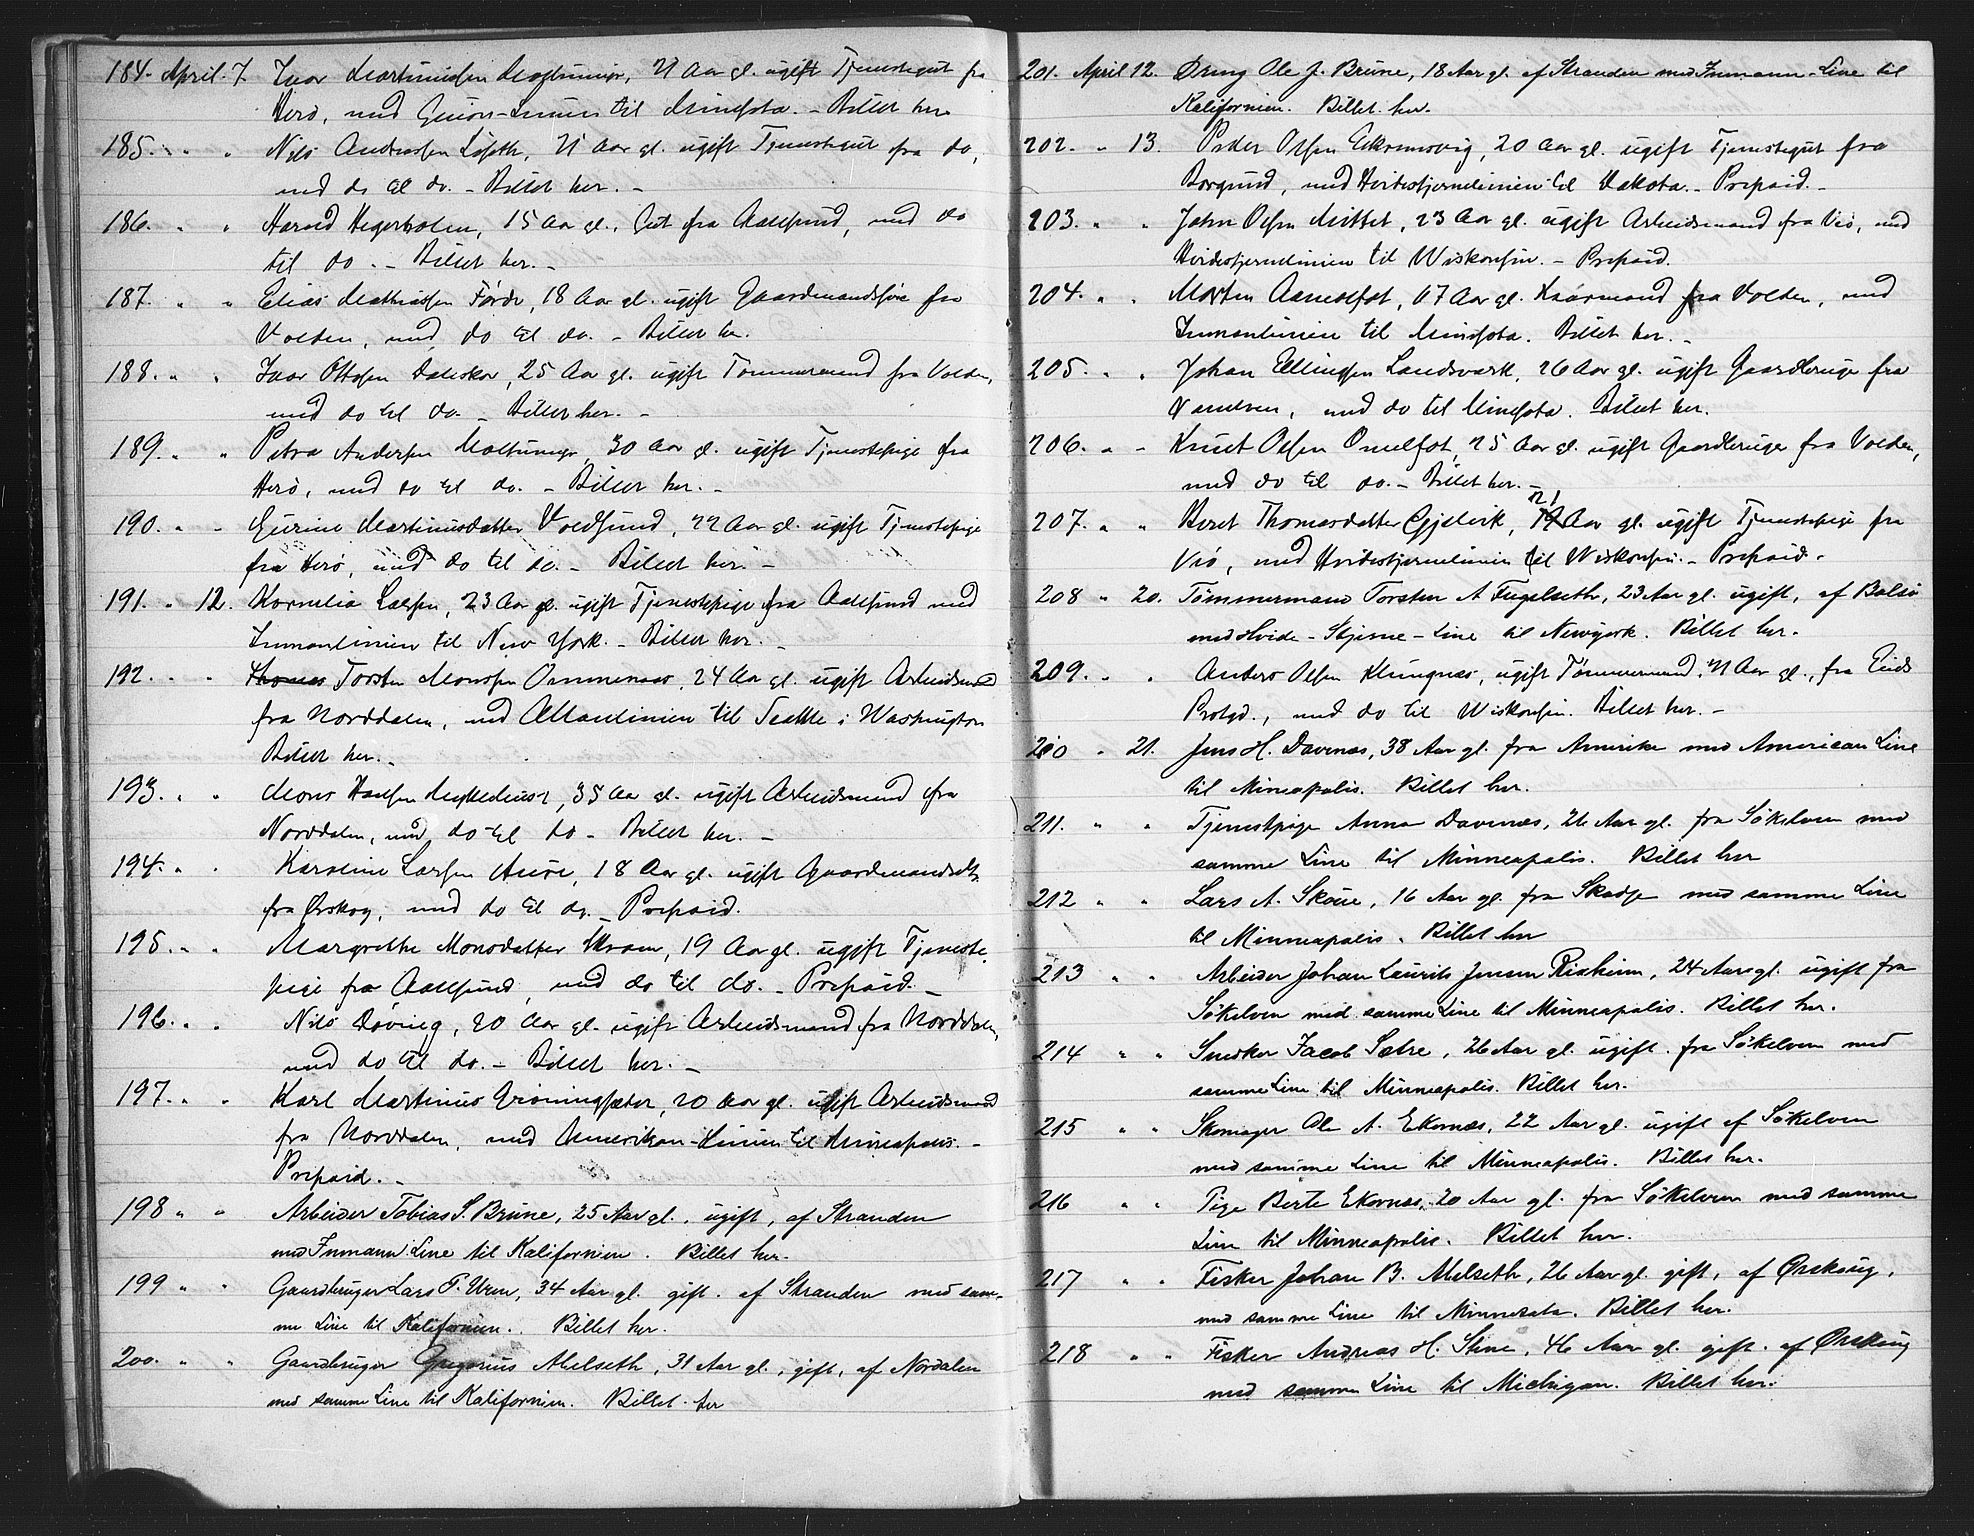 184. April. 7. Ivar Martinussen Moltumyr, 21 Aar gl. ugift Tjenestegut fra
Herö, med Guion-Linien til Minesota. - Billet her
185. " " Nils Andreassen Löseth, 21 Aar gl. ugift Tjenestegut fra do,
med do til do. - Billet her. -
186. " " Harald Hegerholm, 15 Aar gl., Gut fra Aalesund, med do
til do. - Billet her. -
187. " " Elias Mathiassen Förde, 18 Aar gl. ugift Gaardmandssön fra
Volden, med do til do. - Billet her.
188. " " Ivar Ottosen Daleskar, 25 Aar gl. ugift Tömmermand fra Volden,
med do til do. - Billet her. -
189. " " Petra Andersen Moltumyr, 30 Aar gl. ugift Tjenestepige fra
Herö, med do til do. - Billet her. -
190. " " Gurine Martinusdatter Voldsund, 22 Aar gl. ugift Tjenestepige
fra Herö, med do til do. - Billet her. -
191. " 12. Kornelia Larsen, 23 Aar gl. ugift Tjenestepige fra Aalesund med
Inmanlinien til New York. - Billet her. -
192. " " Thomas Torsten Monsen Ommenaas, 24 Aar gl. ugift Arbeidsmand
fra Norddalen, med Allanlinien til Seattle i Washington
Billet her. -
193. " " Mons Hansen, 35 Aar gl. ugift Arbeidsmand fra
Norddalen, med do til do - Billet her. -
194. " . Karoline Larsen Aure, 18 Aar gl. ugift Gaardmandsdt.
fra Örskog, med do til do. - Prepaid.
195. " " Margrethe Monsdatter, 19 Aar gl. ugift Tjeneste,
pige fra Aalesund, med do til do. - Prepaid. -
196. " " Nils Döving, 20 Aar gl. ugift Arbeidsmand fra Norddalen,
med do til do. - Billet her. -
197. " " Karl Martinus Gröningsæter, 20 Aar gl. ugift Arbeidsmand
fra Norddalen, med Amerikan-Linien til Minneapolis. -
Prepaid. -
198 " " Arbeider Tobias S. Brune, 25 Aar gl., ugift, af Stranden
med Inmann Line til Kalifornien. Billet her.
199 " " Gaardbruger Lars P. Uren, 34 Aar gl. gift. af Stranden med sam-
me Line til Kalifornien. Billet her.
200. " " Gaardbruger Gregorius Melseth, 31 Aar gl., gift, af Nordalen
med samme Line til Kalifornien. Billet her
201. April 12. Dreng Ole J. Brune, 18 Aar gl. af Stranden med Inmann-Line til
Kalifornien. Billet her.
202. " 13. Peder Olsen Ekremsvig, 20 Aar gl. ugift Tjenestegut fra
Borgund, med Hvidestjernelinien til Dakota. - Prepaid. -
203. " " John Olsen Mittet, 23 Aar gl. ugift Arbeidsmand fra Veö, med
Hvidestjernelinien til Wiskonsin. - Prepaid.
204. " " Morten Aarnesfot, 67 Aar gl. Kaarmand fra Volden, med
Inmanlinien til Minesota. Billet her. -
205. " " Johan Ellingsen Landsvark, 26 Aar gl. ugift Gaardbruger fra
Vanelven, med do til Minesota. Billet her.
206. " - Knut Olsen Omelfot, 25 Aar gl. ugift Gaardbruger fra Volden,
med do til do. - Billet her. -
207. " " Beret Thomasdatter Gjelvik, 19 21 Aar gl. ugift Tjenestepige fra
Veö, med Hvidestjernelinien til Wiskonsin. - Prepaid. -
208 " 20. Tømmermand Torsten A Fugelseth, 23 Aar gl. ugift, af Bolsö
med Hvide-Stjerne-Line til Newyork. Billet her.
209. " " Anders Olsen Klungnæs, ugift Tömmermand, 21 Aar gl., fra Eids
Prstgd., med do til Wiskonsin. Billet her. -
210 " 21. Jens H. Davenæs, 38 Aar gl. fra Amerika med American Line
til Minneapolis. Billet her.
211. " " Tjenestpige Anna Davenæs, 26 Aar gl. fra Sökelven med
samme Line til Minneapolis. Billet her
212 " " Lars A. Skare, 16 Aar gl. fra Skodje med samme Line
til Minneapolis. Billet her
213 " " Arbeider Johan Laurits Jensen Risheim, 24 Aar gl. ugift fra
Sökelven med samme Line til Minneapolis. Billet her.
214 " " Snedker Jacob Sætre, 26 Aar gl. ugift. fra Sökelven med
samme Line til Minneapolis. Billet her.
215 " " Skomager Ole A. Ekornæs, 22 Aar gl. ugift af Sökelven
med samme Line til Minneapolis. Billet her.
216 " " Pige Berte Ekornæs, 20 Aar gl. fra Sökelven med samme
Line til Minneapolis. Billet her.
217 " " Fisker Johan B. Melseth, 26 Aar gl. gift, af Ørskoug,
med samme Line til Minnesota. Billet her.
218 " " Fisker Andreas H. Stene, 46 Aar gl. gift. af Ørskoug
med samme Line til Michigan. Billet her.